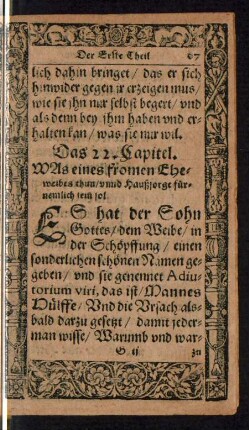 Der Erste Theil 67
lich dahin bringet / das er sich
hinwider gegen jr erzeigen mus /
wie sie jhn nur selbst begert / vnd
als denn bey jhm haben vnd er-
halten kan / was sie nur wil.
Das 22. Capitel.
WAs eines fromen Ehe-
weibes thun / vnnd Haußsorge für-
nemlich sein sol.
ES hat der Sohn
Gottes / dem Weibe / in
der Schöpffung / einen
sonderlichen schönen Namen ge-
geben / vnd sie genennet Adiu-
torium viri, das ist / Mannes
Hülffe / Vnd die Vrsach als-
bald darzu gesetzt / damit jeder-
man wisse / Warumb vnd war-
G ij zu